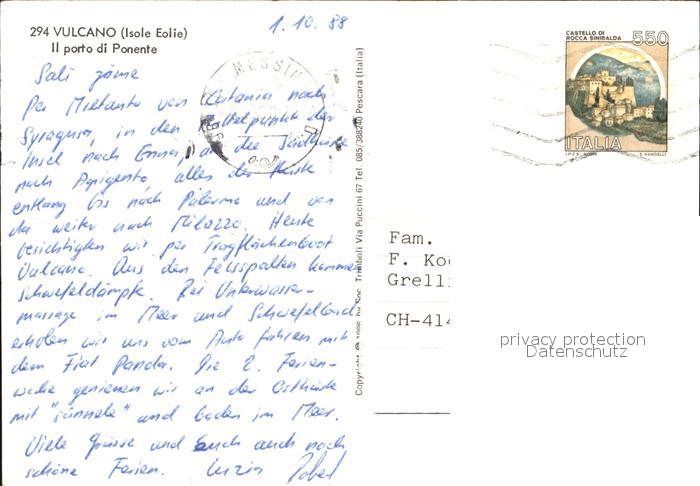 294 VULCANO (Isole Eolie)
Il porto di Ponente
1.10.88
CASTELLO DI
ROCCA SINIBALDA
550
ITALIA
MESSIN
Sali zäme
Per Mietauto von Catania nach
Syragusa, in den Mittelpunkt der
Insel nach Enna, an die Südküste
nach Agrigento, alles der Küste
entlang bis nach Palermo und von
da weiter nach Milazzo. Heute
besichtigten wir per Tragflächenboot
Vulcano. Aus den Felsspalten kommen
Schwefeldämpfe. Bei Unterwasser-
massage im Meer und Schwefelbad
erholen wir uns vom Auto fahren mit
dem Fiat Panda. Die 2. Ferien-
woche geniessen wir an der Ostküste
mit "sünnele" und baden im Meer.
Viele Grüsse und euch auch noch
schöne Ferien.
Trimboli Via Puccini 67 Tel. 085/388240 Pescara (Italia)
Fam.
F.
Grell
CH-414
privacy protection
Datenschutz